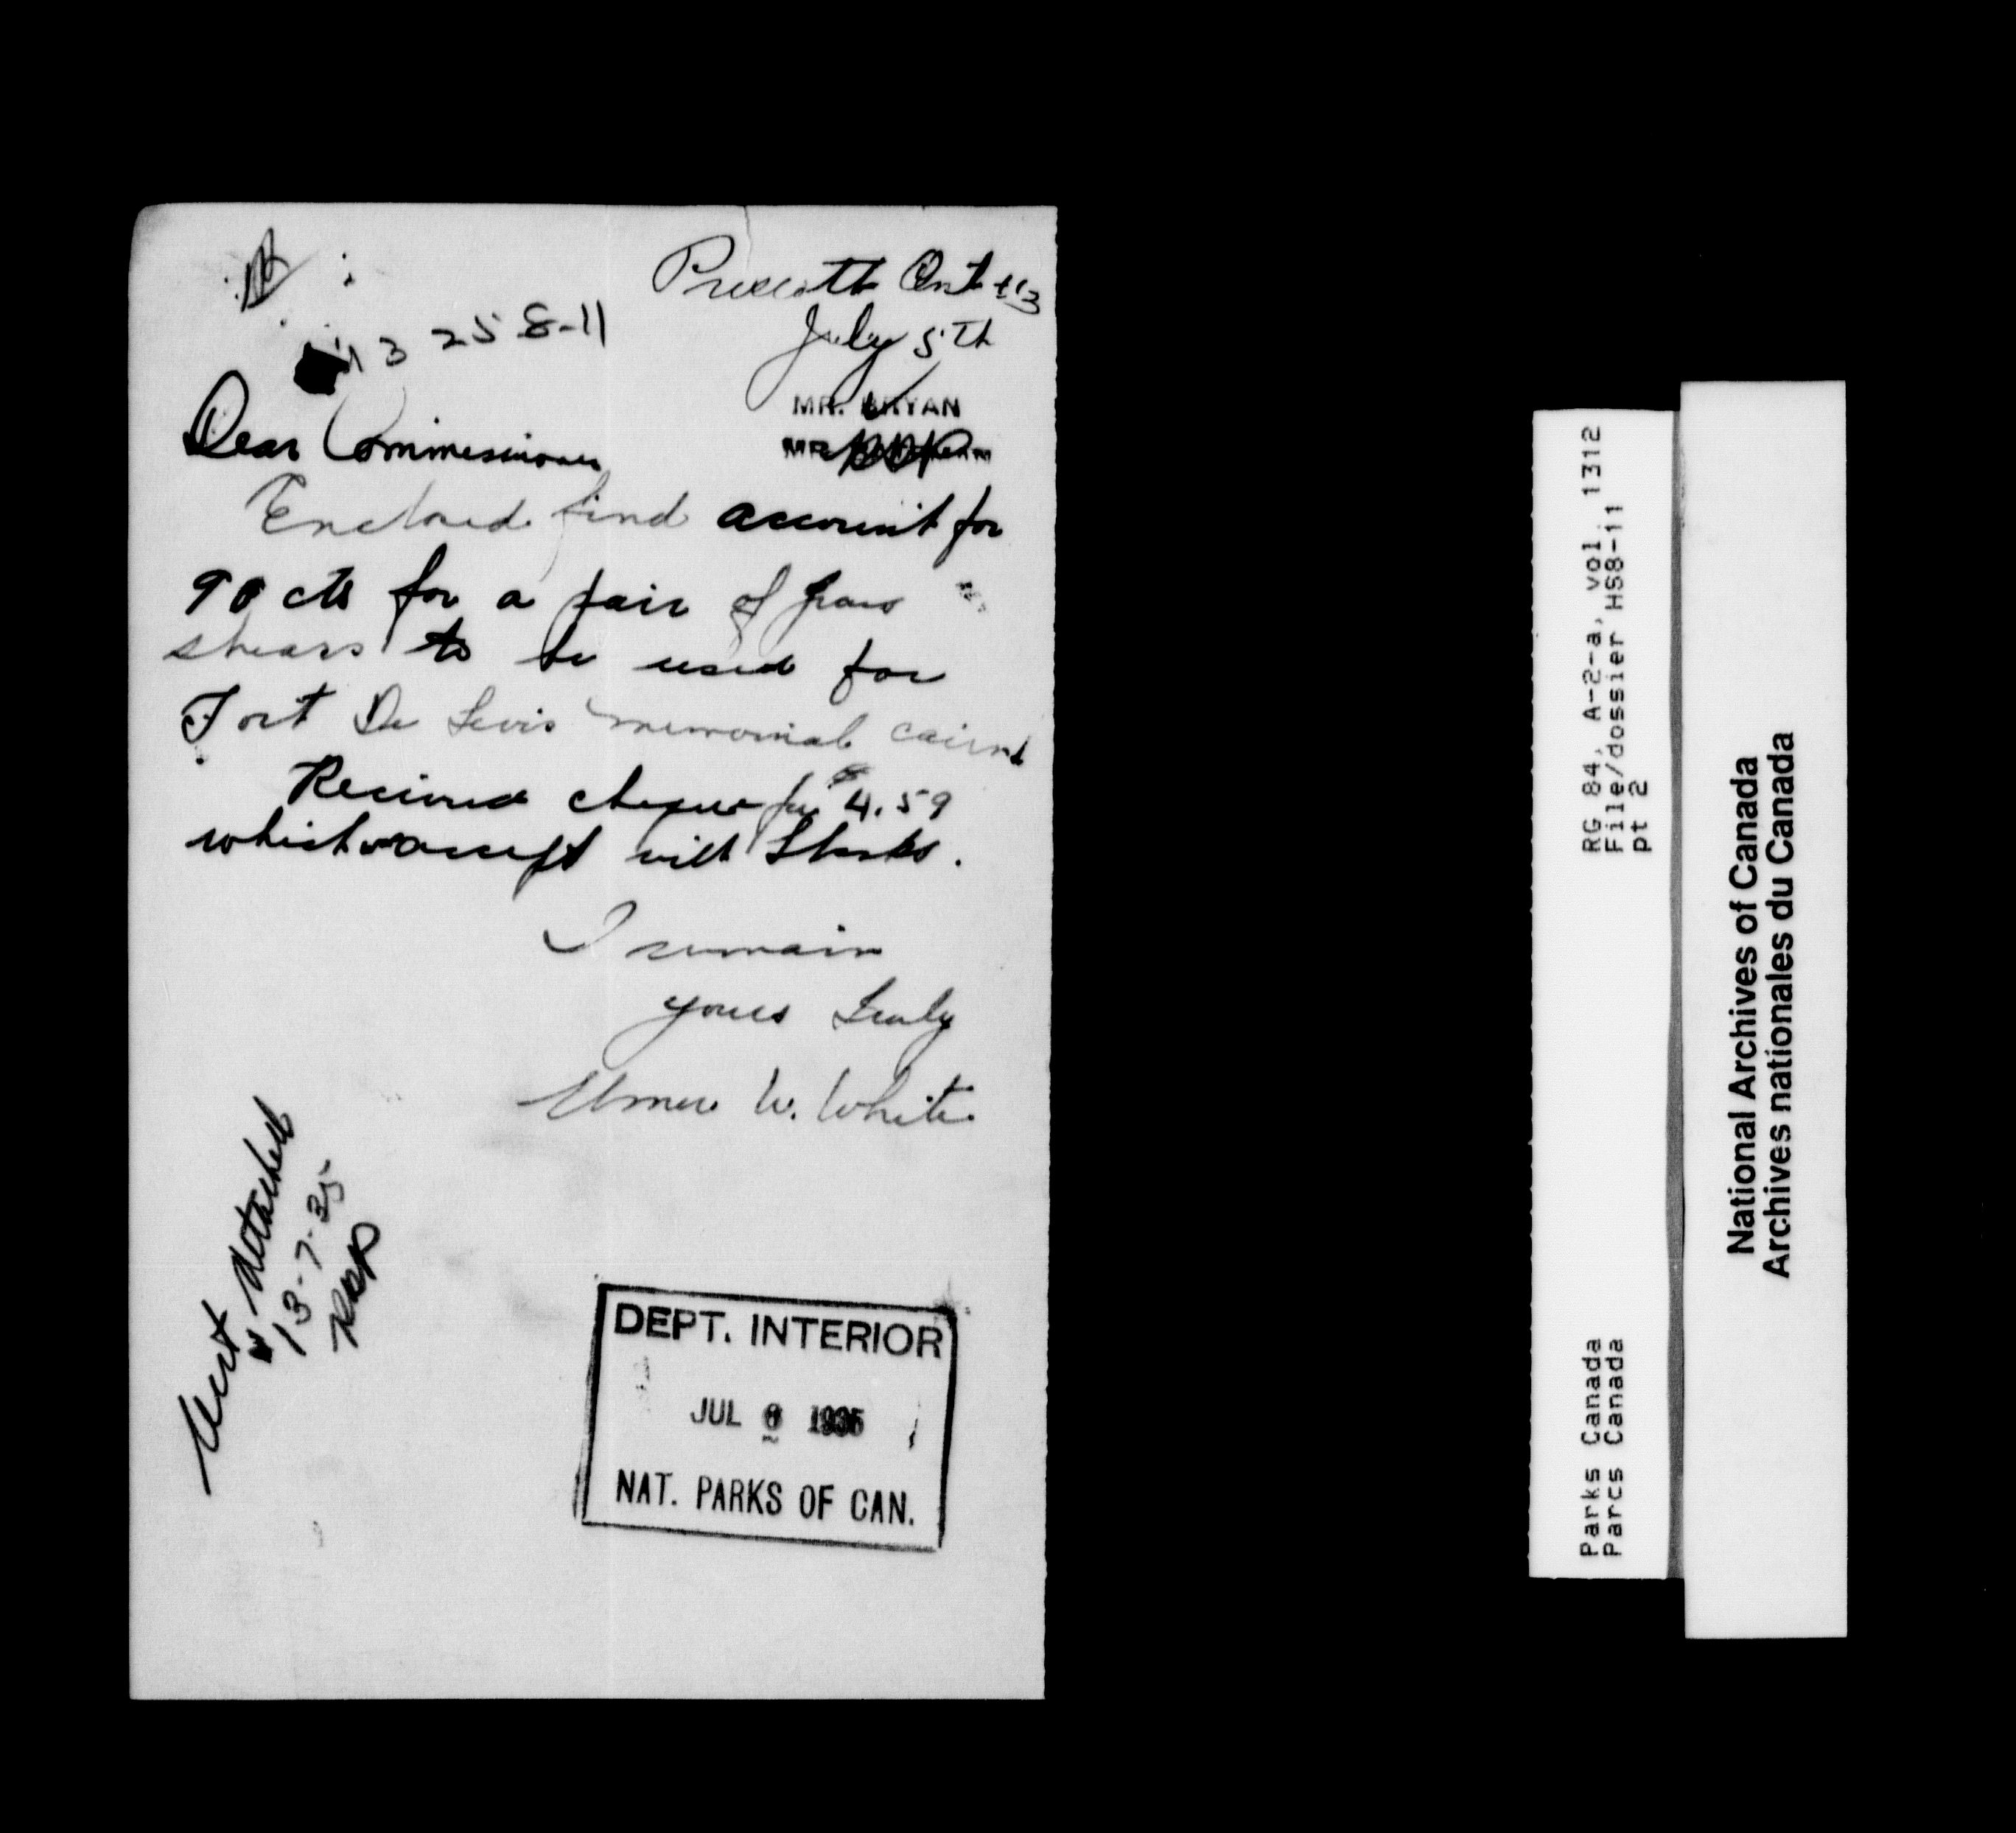 Prescott Ont #3
July 5th
8-11
MR. BRYAN
MR.
Dear Commissioner
Enclosed find account for
90 cts for a pair of grass
shears to be used for
Fort De Levis memorial cairn
Recieved cheque for $4.59
which accept with thanks.
I remain
yours truly
Elmer W. White
detached
13-7-35
DEPT. INTERIOR
JUL 1935
NAT. PARKS OF CAN.
RG 84, A-2-a, vol. 1312
File/dossier HS8-11
pt 2
Parks Canada
Parcs Canada
National Archives of Canada
Archives nationales du Canada